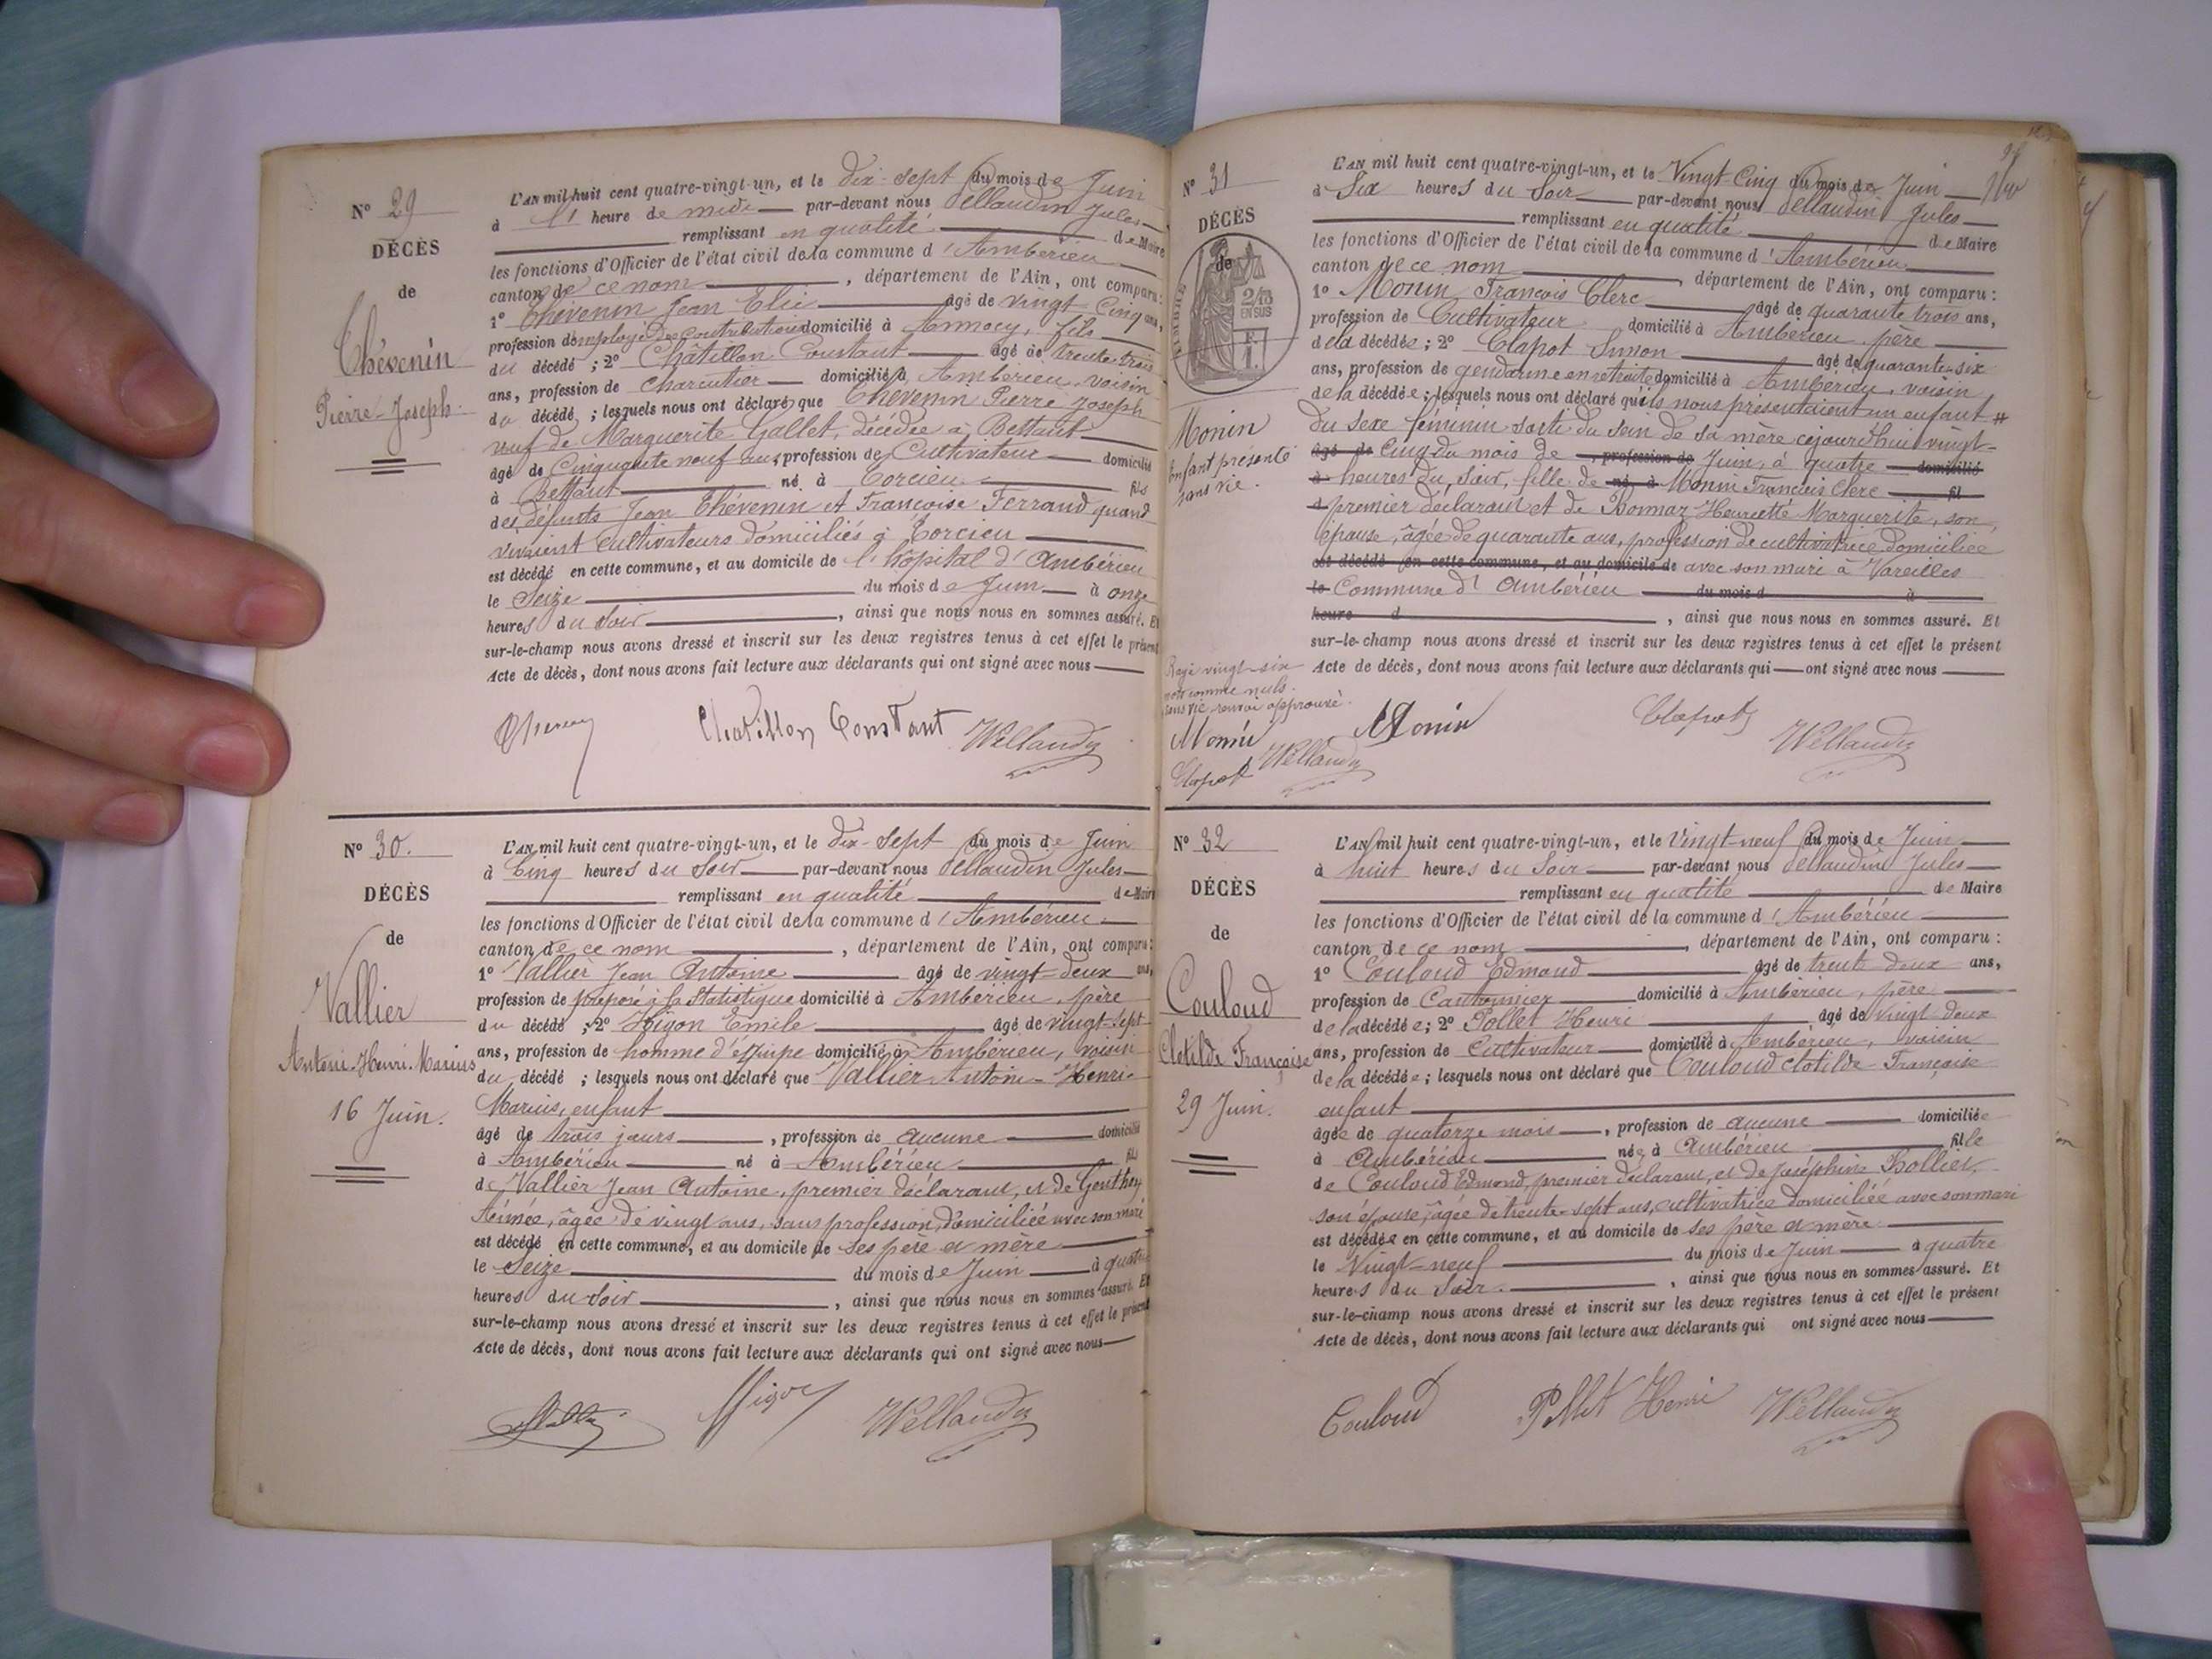 N° 29
DÉCÈS
de
Thévenin
Pierre-Joseph
L'AN mil huit cent quatre-vingt-un, et le dix-sept du mois de Juin
à l'1 heure de midi par-devant nous Vellaudin Jules
remplissant en qualité de Maire
les fonctions d'Officier de l'état civil de la commune d'Ambérieu
canton de ce nom, département de l'Ain, ont comparu :
1° Thévenin Jean Elie âgé de vingt cinq ans,
profession d'employé des contributions domicilié à Annecy, fils
du décédé ; 2° Châtillon Constant âgé de trente-trois
ans, profession de charcutier domicilié à Ambérieu, voisin
du décédé ; lesquels nous ont déclaré que Thévenin Pierre Joseph
veuf de Marguerite Gallet, décédée à Bettant
âgé de Cinquante neuf ans, profession de Cultivateur domicilié
à Bettant né à Torcieu fils
des défunts Jean Thévenin et Françoise Ferrand quand
vivaient cultivateurs domiciliés à Torcieu
est décédé en cette commune, et au domicile de l'hôpital d'Ambérieu
le Seize du mois de Juin à onze
heures du soir, ainsi que nous nous en sommes assuré. Et
sur-le-champ nous avons dressé et inscrit sur les deux registres tenus à cet effet le présent
Acte de décès, dont nous avons fait lecture aux déclarants qui ont signé avec nous
Chatillon Constant Vellaudin
N° 30.
DÉCÈS
de
Vallier
Antoine-Henri-Marius
16 Juin.
L'AN mil huit cent quatre-vingt-un, et le dix-sept du mois de Juin
à Cinq heures du soir par-devant nous Vellaudin Jules
remplissant en qualité de Maire
les fonctions d'Officier de l'état civil de la commune d'Ambérieu
canton de ce nom, département de l'Ain, ont comparu :
1° Vallier Jean Antoine âgé de vingt-deux ans,
profession de préposé à la Statistique domicilié à Ambérieu, père
du décédé ; 2° Higon Emile âgé de vingt-sept
ans, profession de homme d'équipe domicilié à Ambérieu, voisin
du décédé ; lesquels nous ont déclaré que Vallier Antoine-Henri-
Marius, enfant
âgé de trois jours, profession de aucune domicilié
à Ambérieu né à Ambérieu fils
de Vallier Jean Antoine, premier déclarant, et de
Aimée, âgée de vingt ans, sans profession, domiciliée avec son mari
est décédé en cette commune, et au domicile de ses père et mère
le Seize du mois de Juin à quatre
heures du soir, ainsi que nous nous en sommes assuré. Et
sur-le-champ nous avons dressé et inscrit sur les deux registres tenus à cet effet le présent
Acte de décès, dont nous avons fait lecture aux déclarants qui ont signé avec nous
Higon Vellaudin
N° 31
DÉCÈS
de
2/10
EN SUS
Monin
Enfant présenté
sans vie.
L'AN mil huit cent quatre-vingt-un, et le Vingt Cinq du mois de Juin
à Six heures du soir par-devant nous Vellaudin Jules
remplissant en qualité de Maire
les fonctions d'Officier de l'état civil de la commune d'Ambérieu
canton de ce nom, département de l'Ain, ont comparu :
1° Monin François Clerc âgé de quarante trois ans,
profession de Cultivateur domicilié à Ambérieu père
de la décédée ; 2° Clapot Simon âgé de quarante-six
ans, profession de gendarme en retraite domicilié à Ambérieu, voisin
de la décédée ; lesquels nous ont déclaré qu'ils nous présentaient un enfant #
du sexe féminin sorti du sein de sa mère cejourd'hui vingt-
âgé de cinq du mois de , profession de Juin, à quatre domicilié
à heures du soir, fille de né à Monin François Clerc fil
d premier déclarant et de Bonnaz Henriette Marguerite, son
épouse, âgée de quarante ans, profession de cultivatrice domiciliée
est décédé en cette commune, et au domicile de avec son mari à Vareilles
le Commune d'Ambérieu du mois d à
heure d , ainsi que nous nous en sommes assuré. Et
sur-le-champ nous avons dressé et inscrit sur les deux registres tenus à cet effet le présent
Acte de décès, dont nous avons fait lecture aux déclarants qui ont signé avec nous
Rayé vingt-six
mots comme nuls.
# sans vie renvoi approuvé.
Monin Monin Clapot Vellaudin
Clapot Vellaudin
N° 32
DÉCÈS
de
Couloud
Clotilde Françoise
29 Juin.
L'AN mil huit cent quatre-vingt-un, et le Vingt-neuf du mois de Juin
à huit heures du soir par-devant nous Vellaudin Jules
remplissant en qualité de Maire
les fonctions d'Officier de l'état civil de la commune d'Ambérieu
canton de ce nom, département de l'Ain, ont comparu :
1° Couloud Edmond âgé de trente deux ans,
profession de Cantonnier domicilié à Ambérieu, père
de la décédée ; 2° Pollet Henri âgé de vingt-deux
ans, profession de Cultivateur domicilié à Ambérieu, voisin
de la décédée ; lesquels nous ont déclaré que Couloud Clotilde Françoise
enfant
âgée de quatorze mois, profession de aucune domiciliée
à Ambérieu née à Ambérieu fille
de Couloud Edmond, premier déclarant, et de Joséphine Bollier,
son épouse, âgée de trente-sept ans, cultivatrice domiciliée avec son mari
est décédée en cette commune, et au domicile de ses père et mère
le Vingt-neuf du mois de Juin à quatre
heures du soir, ainsi que nous nous en sommes assuré. Et
sur-le-champ nous avons dressé et inscrit sur les deux registres tenus à cet effet le présent
Acte de décès, dont nous avons fait lecture aux déclarants qui ont signé avec nous
Couloud Pollet Henri Vellaudin